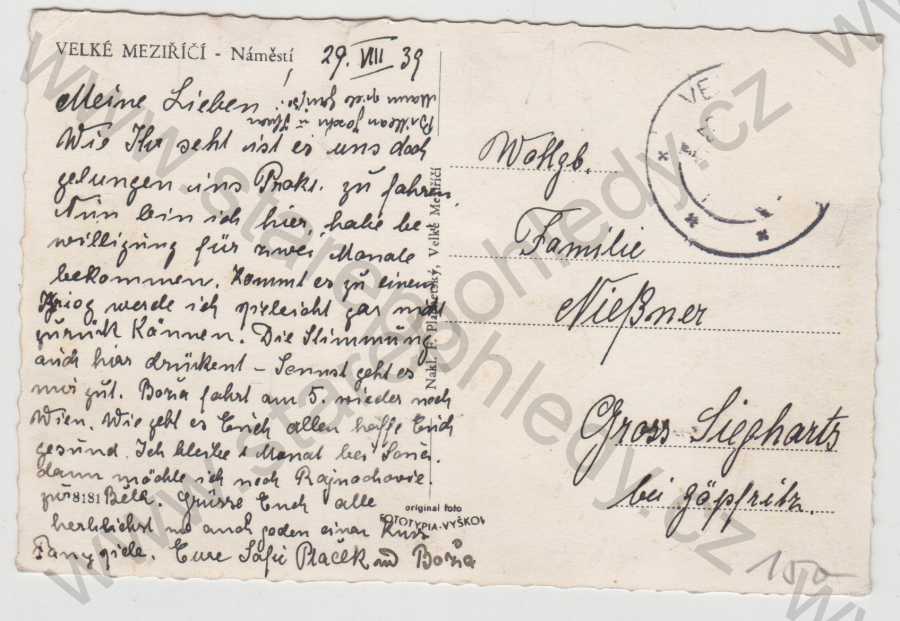 VELKÉ MEZIŘÍČÍ - Náměstí
29. VIII 39
Meine Lieben
Wie Ihr seht ist es uns doch
gelungen ins Prokt. zu fahren.
Nun bin ich hier, habe be
willigung für zwei Monate
bekommen. Kommt es zu einem
Krieg werde ich vieleicht gar nicht
zurück können. Die Stimmung
auch hier drückent - Sennst geht es
mir gut. Boria fahrt am 5. wieder nach
Wien. Wie geht es Euch allen hoffe Euch
gesund. Ich bleibe 1 Monat bei
dann möchte ich nach Rajnochovic
zur Běla. Grüsse Euch alle
herblichst und auch jeden einen Kuss
Eure Safi Plaček und Boria
8181
original foto
FOTOTYPIA-VYŠKOV
Nakl. F. Velké Meziříčí
Wohlgb.
Familie
Nießner
Gross Siegharts
bei Göpfritz.
VE
150
www.starepohledy.cz